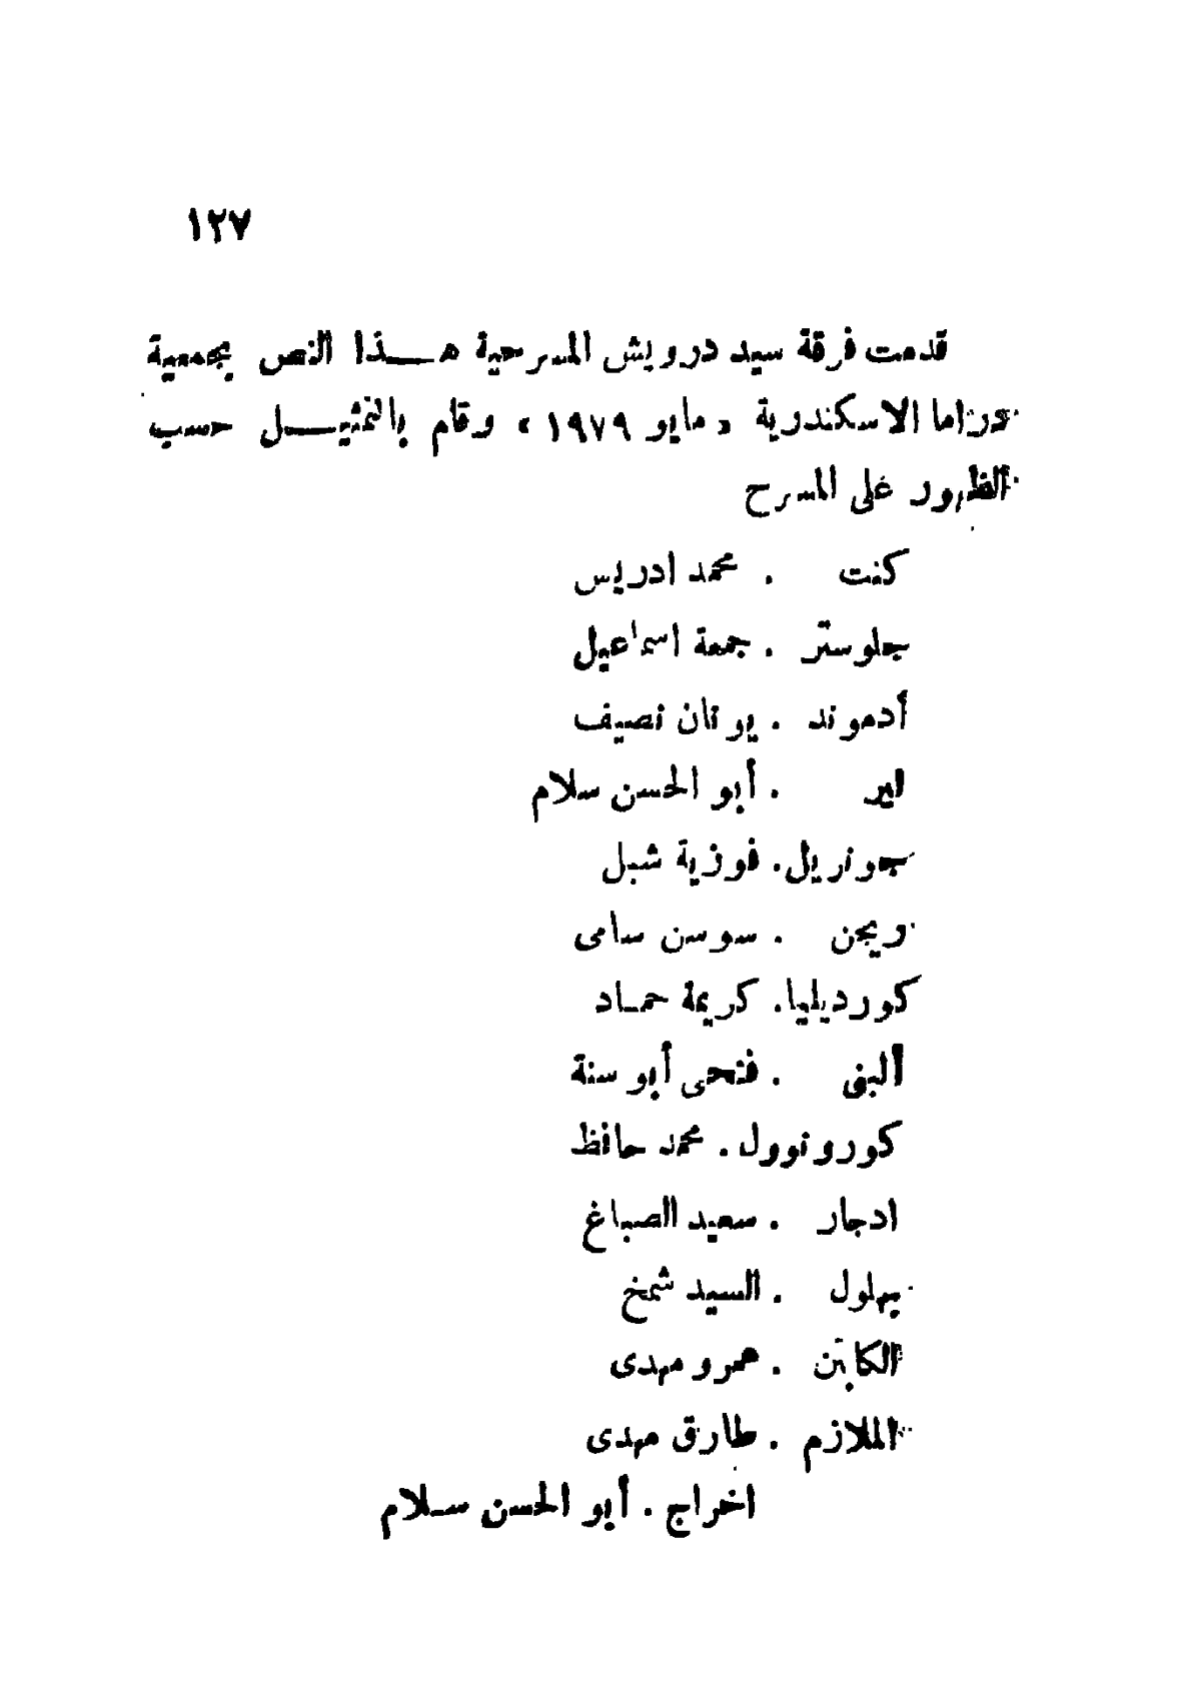 ١٢٧
قدمت فرقة سيد درويش المسرحية هــذا النص بجمعية
دراما الاسكندرية « مايو ١٩٧٩ » وقام بالتمثيــل حسب
الظهور على المسرح
كنت . محمد ادريس
جلوستر . جمعة اسماعيل
أدموند . يونان نصيف
لير . أبو الحسن سلام
جونريل . فوزية شبل
ريجن . سوسن سامى
كورديليا . كريمة حمـاد
ألبنى . فتحى أبو سنة
كورونوول . محمد حافظ
ادجار . سعيد الصباغ
بهلول . السيد شمخ
الكابتن . عمرو مهدى
الملازم . طارق مهدى
اخراج . أبو الحسن سـلام